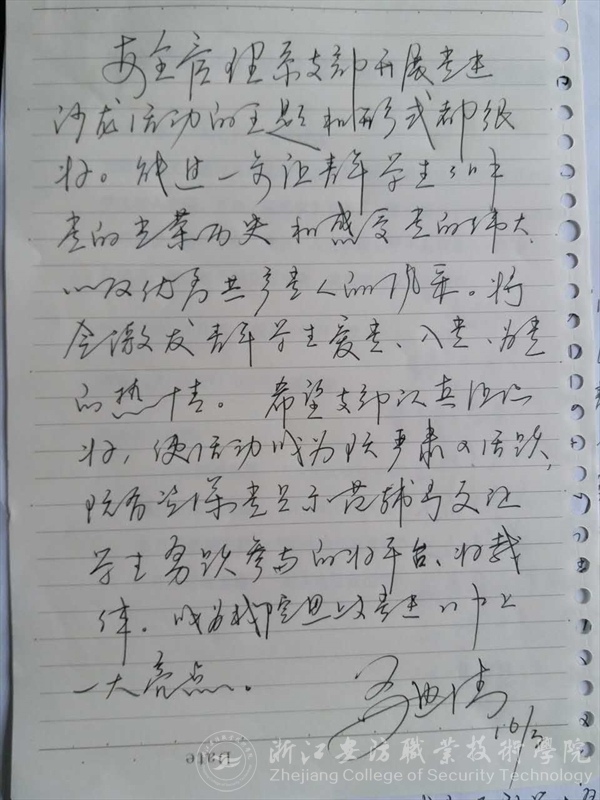 安全管理系支部开展党建
沙龙活动的主题和形式都很
好。能进一步让青年学生了解
党的光荣历史和感受党的伟大
以及优秀共产党人的风采。将
会激发青年学生爱党、入党、为党
的热情。希望支部认真组织
好,使活动成为既严肃又活跃,
既有资深党员示范辅导又让
学生踊跃参与的好平台、好载
体。成为我院思政党建工作上
一大亮点。
16/3
Date
浙江安防職業技術學院
Zhejiang College of Security Technology